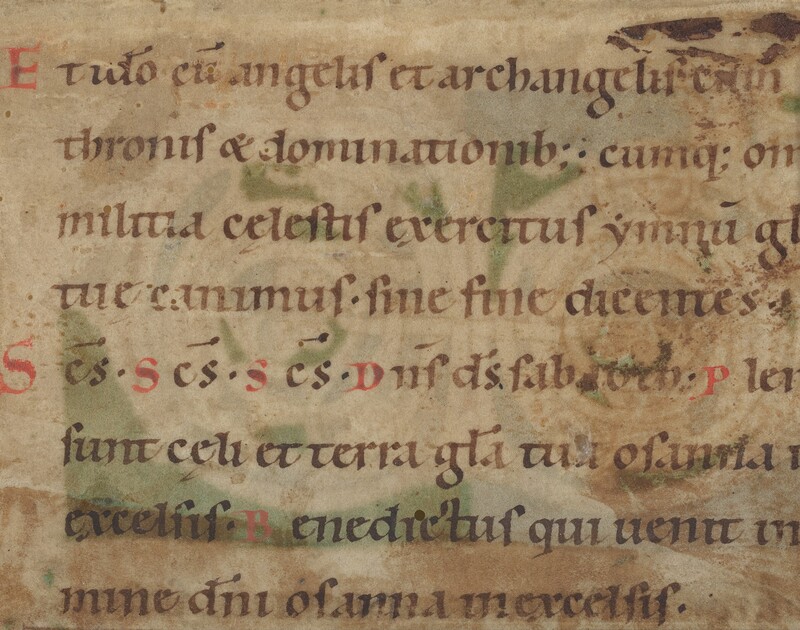 Et ido cū angelis et archangelis cum
thronis & dominationib;· cumq; om
militia cęlestis exercitus ẏmnū gl
tue canimus· sine fine dicentes·
Sc̄s· Sc̄s· Sc̄s· Dn̄s ds̄ sabaoth· Plen
sunt cęli et terra gl̄a tua osanna i
excelsis· Benedictus qui uenit in
mine dn̄i osanna in excelsis·